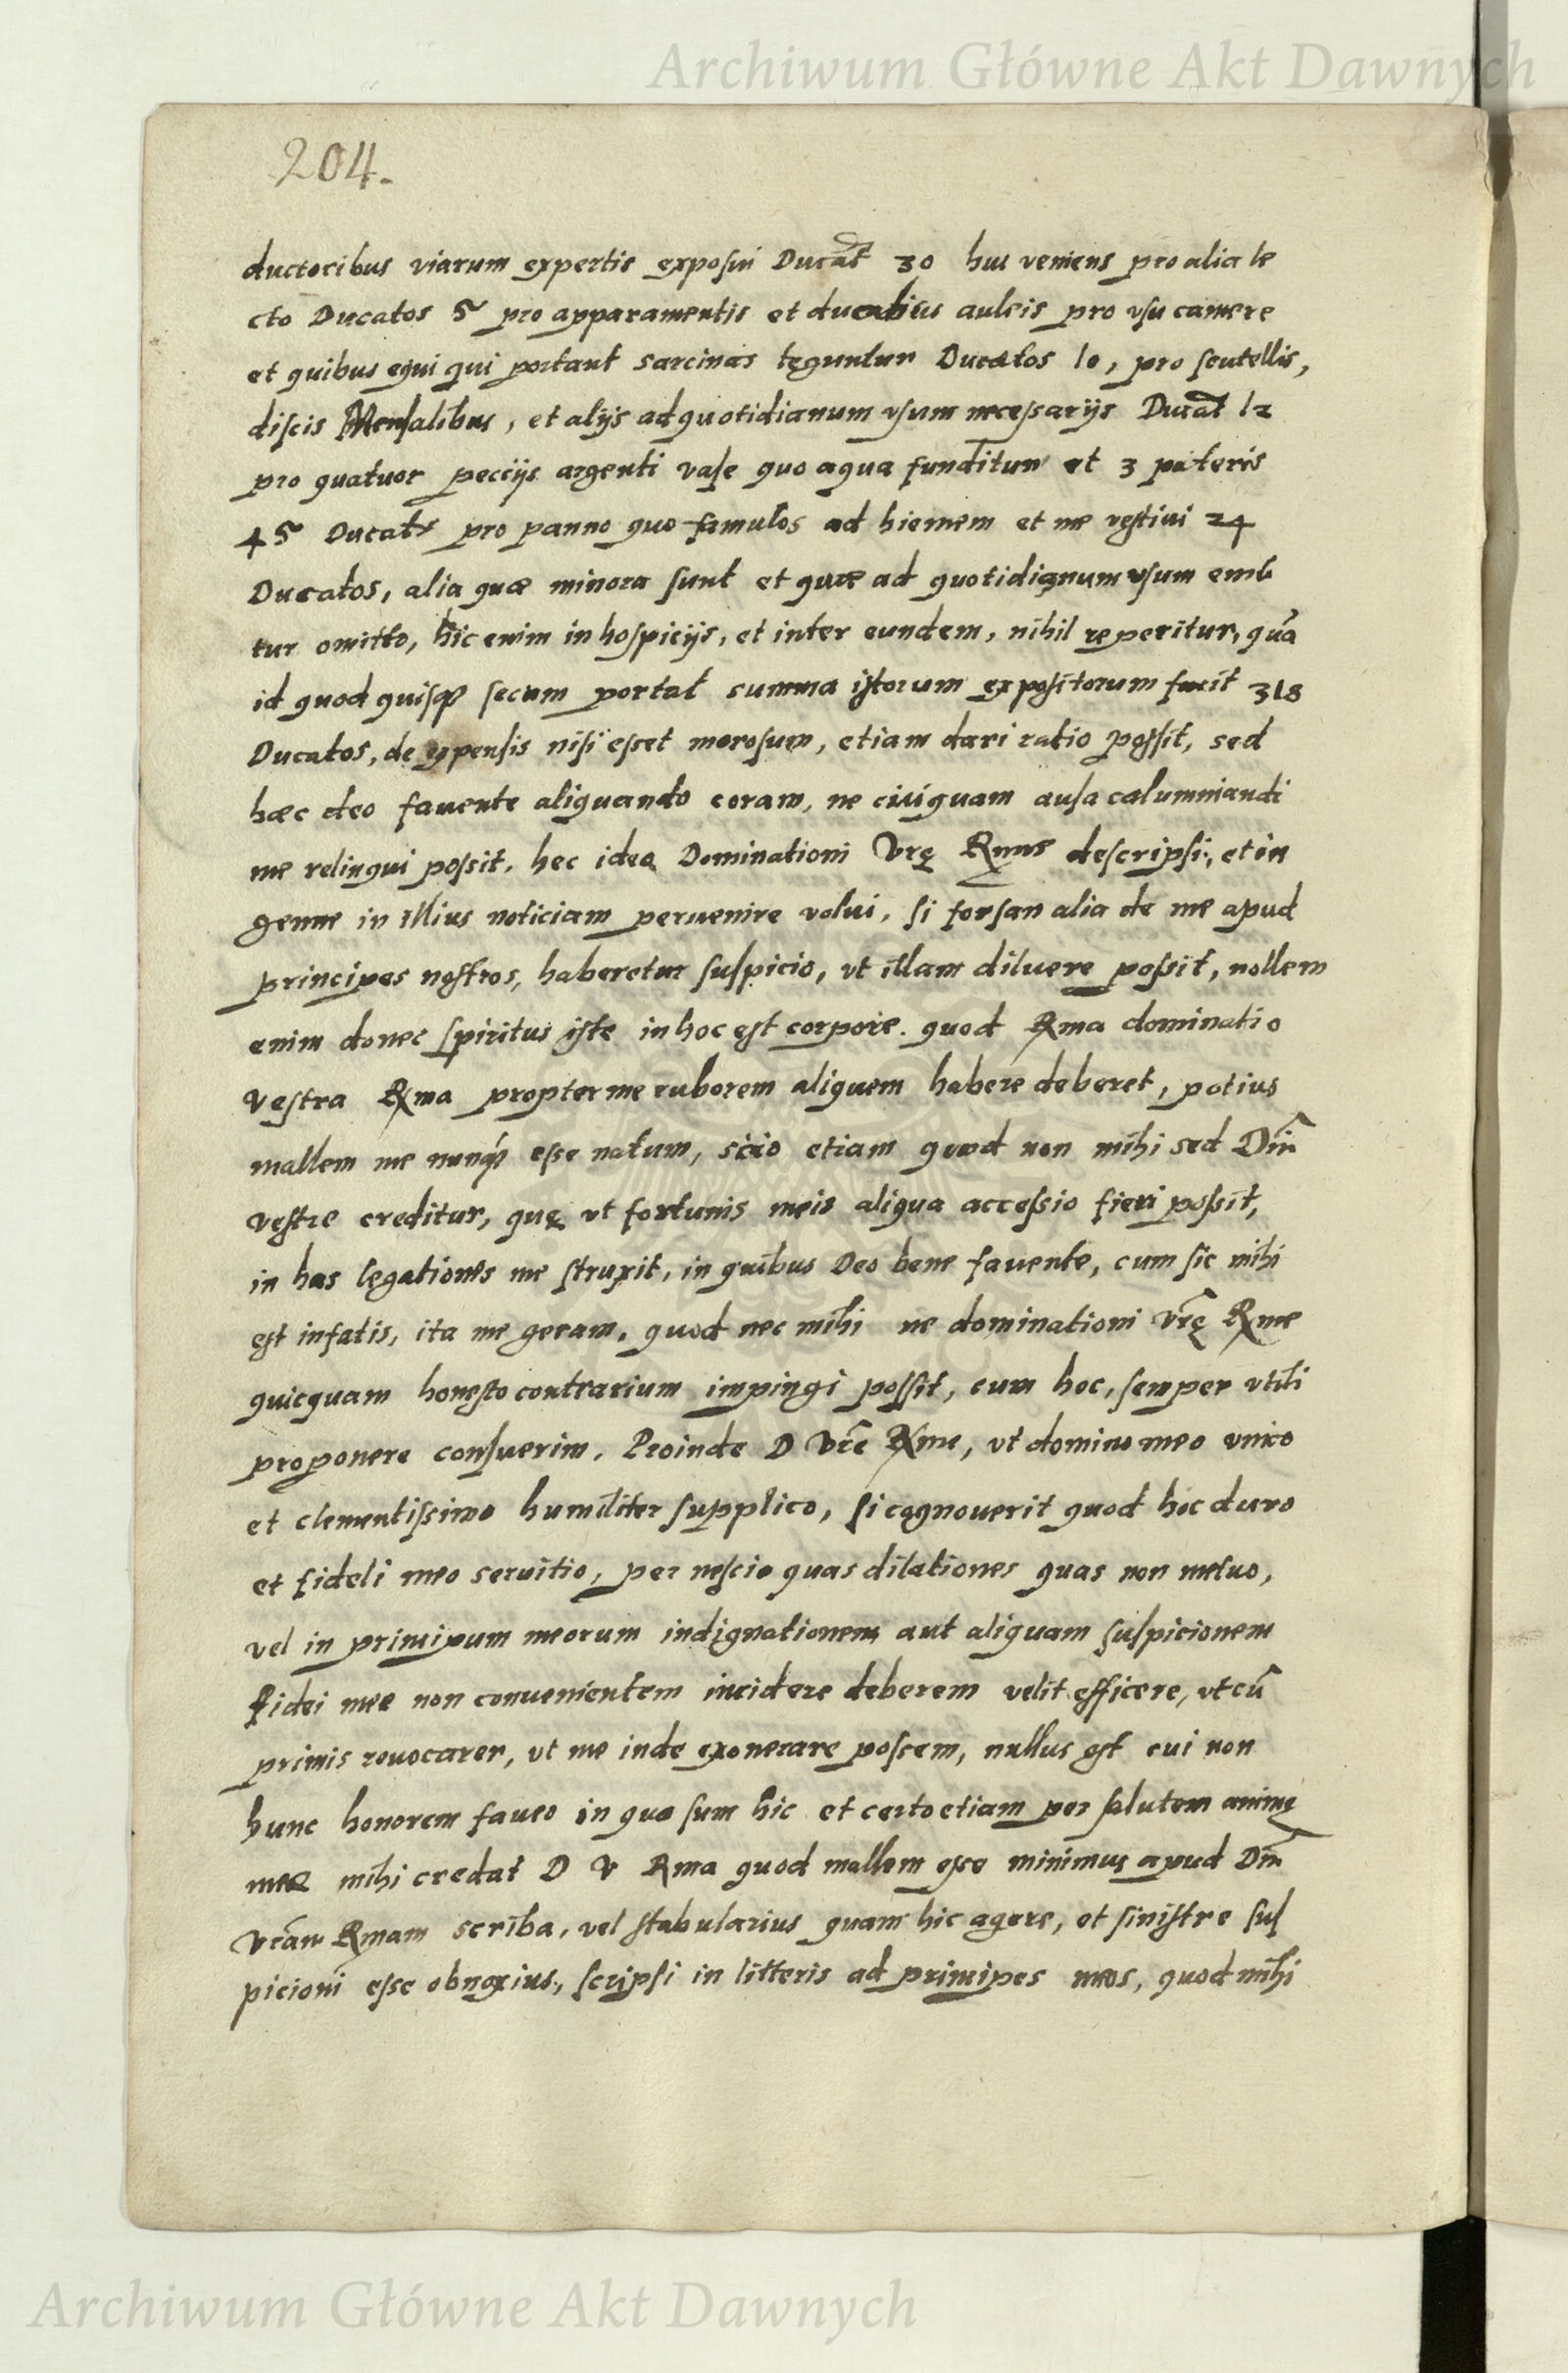 Archiwum Główne Akt Dawnych
204.
ductoribus viarum expertis exposui Ducat 30 huc veniens pro alia le
cto Ducatos 5 pro apparamentis et duabus auleis pro vsu camere
et quibus equi qui portant sarcinas teguntur Ducatos 10, pro scutellis,
discis Mensalibus, et alijs ad quotidianum vsum necessarijs Ducat 12
pro quatuor pecijs argenti vase quo aqua funditur et 3 pateris
45 Ducat pro panno quo famulos ad hiemem et me vestiui 24
Ducatos, alia quæ minora sunt et quæ ad quotidianum vsum emũ
tur omitto, hic enim in hospicijs, et inter eundem, nihil reperitur, quã
id quod quisq secum portat summa istorum expositorum facit 318
Ducatos, de expensis nisi esset morosum, etiam dari ratio possit, sed
hæc deo fauente aliquando coram, ne cuiquam ansa calumniandi
me relinqui possit. hec ideo Dominationi Vrę Rme descripsi, et in
genue in illius noticiam peruenire volui, si forsan alia de me apud
principes nostros, haberetur suspicio, vt illam diluere possit, nollem
enim donec spiritus iste in hoc est corpore. quod Rma dominatio
vestra Rma propter me ruborem aliquem habere deberet, potius
mallem me nunq̃ esse natum, scio etiam quod non mihi sed Dni
vestre creditur, quę vt fortunis meis aliqua accessio fieri possit,
in has legationes me struxit, in quibus Deo bene fauente, cum sic mihi
est in fatis, ita me geram, quod nec mihi ne dominationi Vrę Rme
quicquam honesto contrarium impingi possit, cum hoc, semper vtili
proponere consuerim. Proinde D Vre Rme, vt domino meo vnico
et clementissimo humiliter supplico, si cognouerit quod hoc duro
et fideli meo seruitio, per nescio quas dilationes quas non metuo,
vel in principum meorum indignationem aut aliquam suspicionem
fidei mee non conuenientem incidere deberem velit efficere, vt cũ
primis reuocarer, vt me inde exonerare possem, nullus est cui non
hunc honorem faueo in quo sum hic et certo etiam per salutem animę
meæ mihi credat D V Rma quod mallem esse minimus apud Dm̃
Vrãm Rmam scriba, vel stabularius quam hic agere, et sinistre sus
picioni esse obnoxius, scripsi in litteris ad principes meos, quod mihi
Archiwum Główne Akt Dawnych